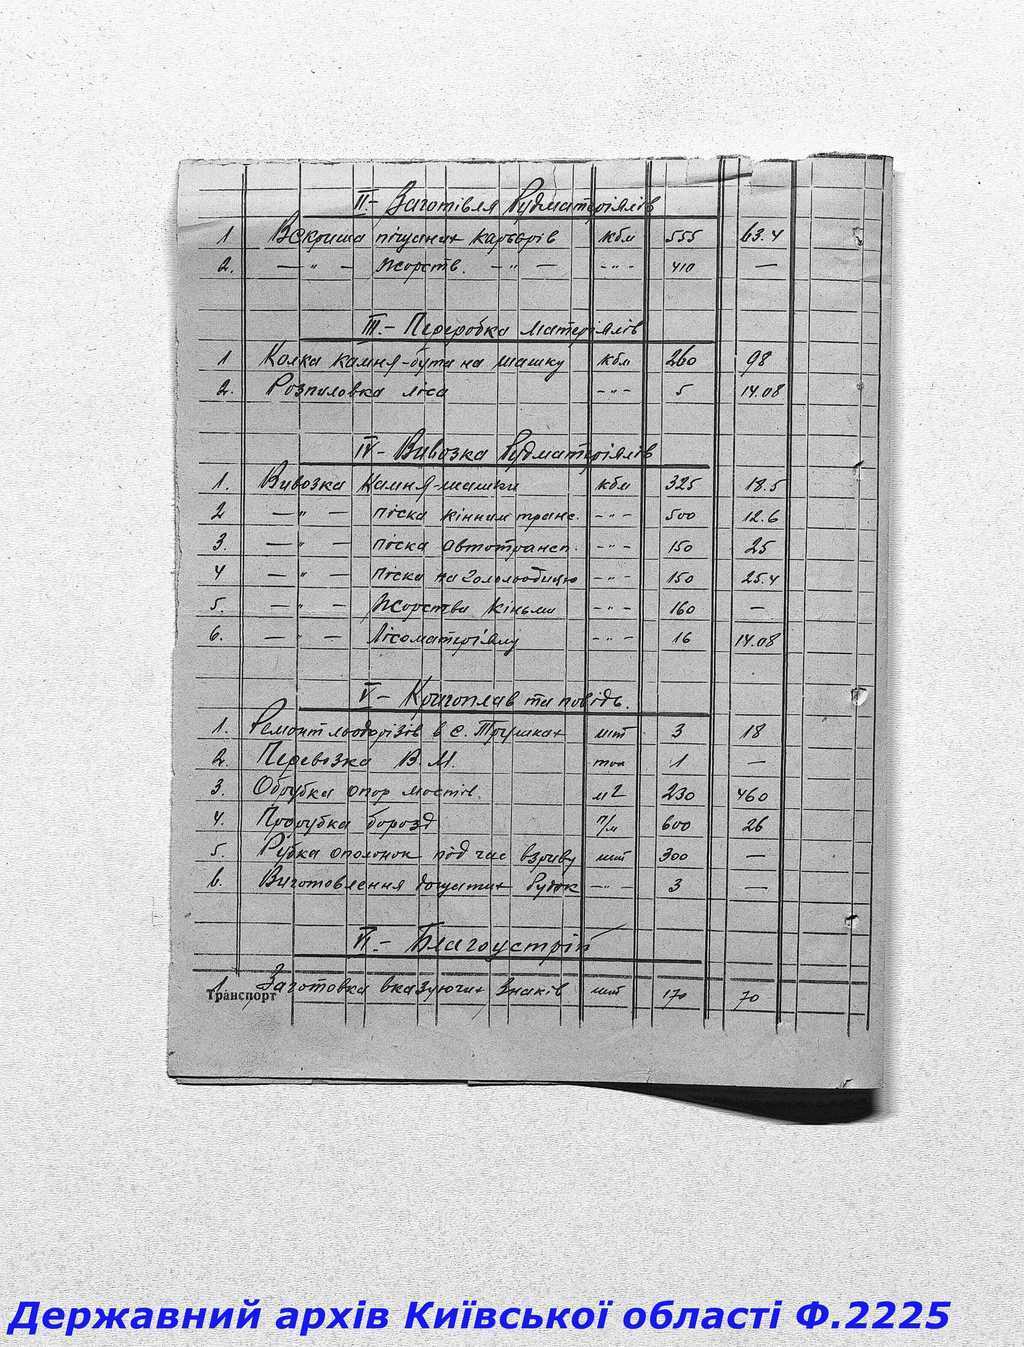 II- Заготівля будматеріялів
1 Вскриша піщаних карʼєрів кбм 555 63.4
2. — " — Жорств. — " — -"- 410 —
III.- Переробка матеріялів
1 Колка камня-бута на шашку кбм 260 98
2. Розпиловка ліса -"- 5 14.08
IV- Вивозка будматеріялів
1. Вивозка камня-шашки кбм 325 18.5
2 — " — піска кінним транс. -"- 500 12.6
3. — " — піска автотрансп. -"- 150 25
4 — " — піска на голольодицю -"- 150 25.4
5. — " — Жорства кіньми -"- 160 —
6. — " — Лісоматеріялу -"- 16 14.08
V- Кригоплав та повідь.
1. Ремонт льодорізів в с. Трушках шт 3 18
2. Перевозка В.М. тон 1 —
3. Обрубка опор мостів. м2 230 460
4. Прорубка борозд п/м 600 26
5. Рубка ополонок під час взриву шт 300 —
6. Виготовлення дощатих будок -"- 3 —
VI.- Благоустрій
1. Заготовка вказуючих знаків шт 170 70
Транспорт
Державний архів Київської області Ф.2225